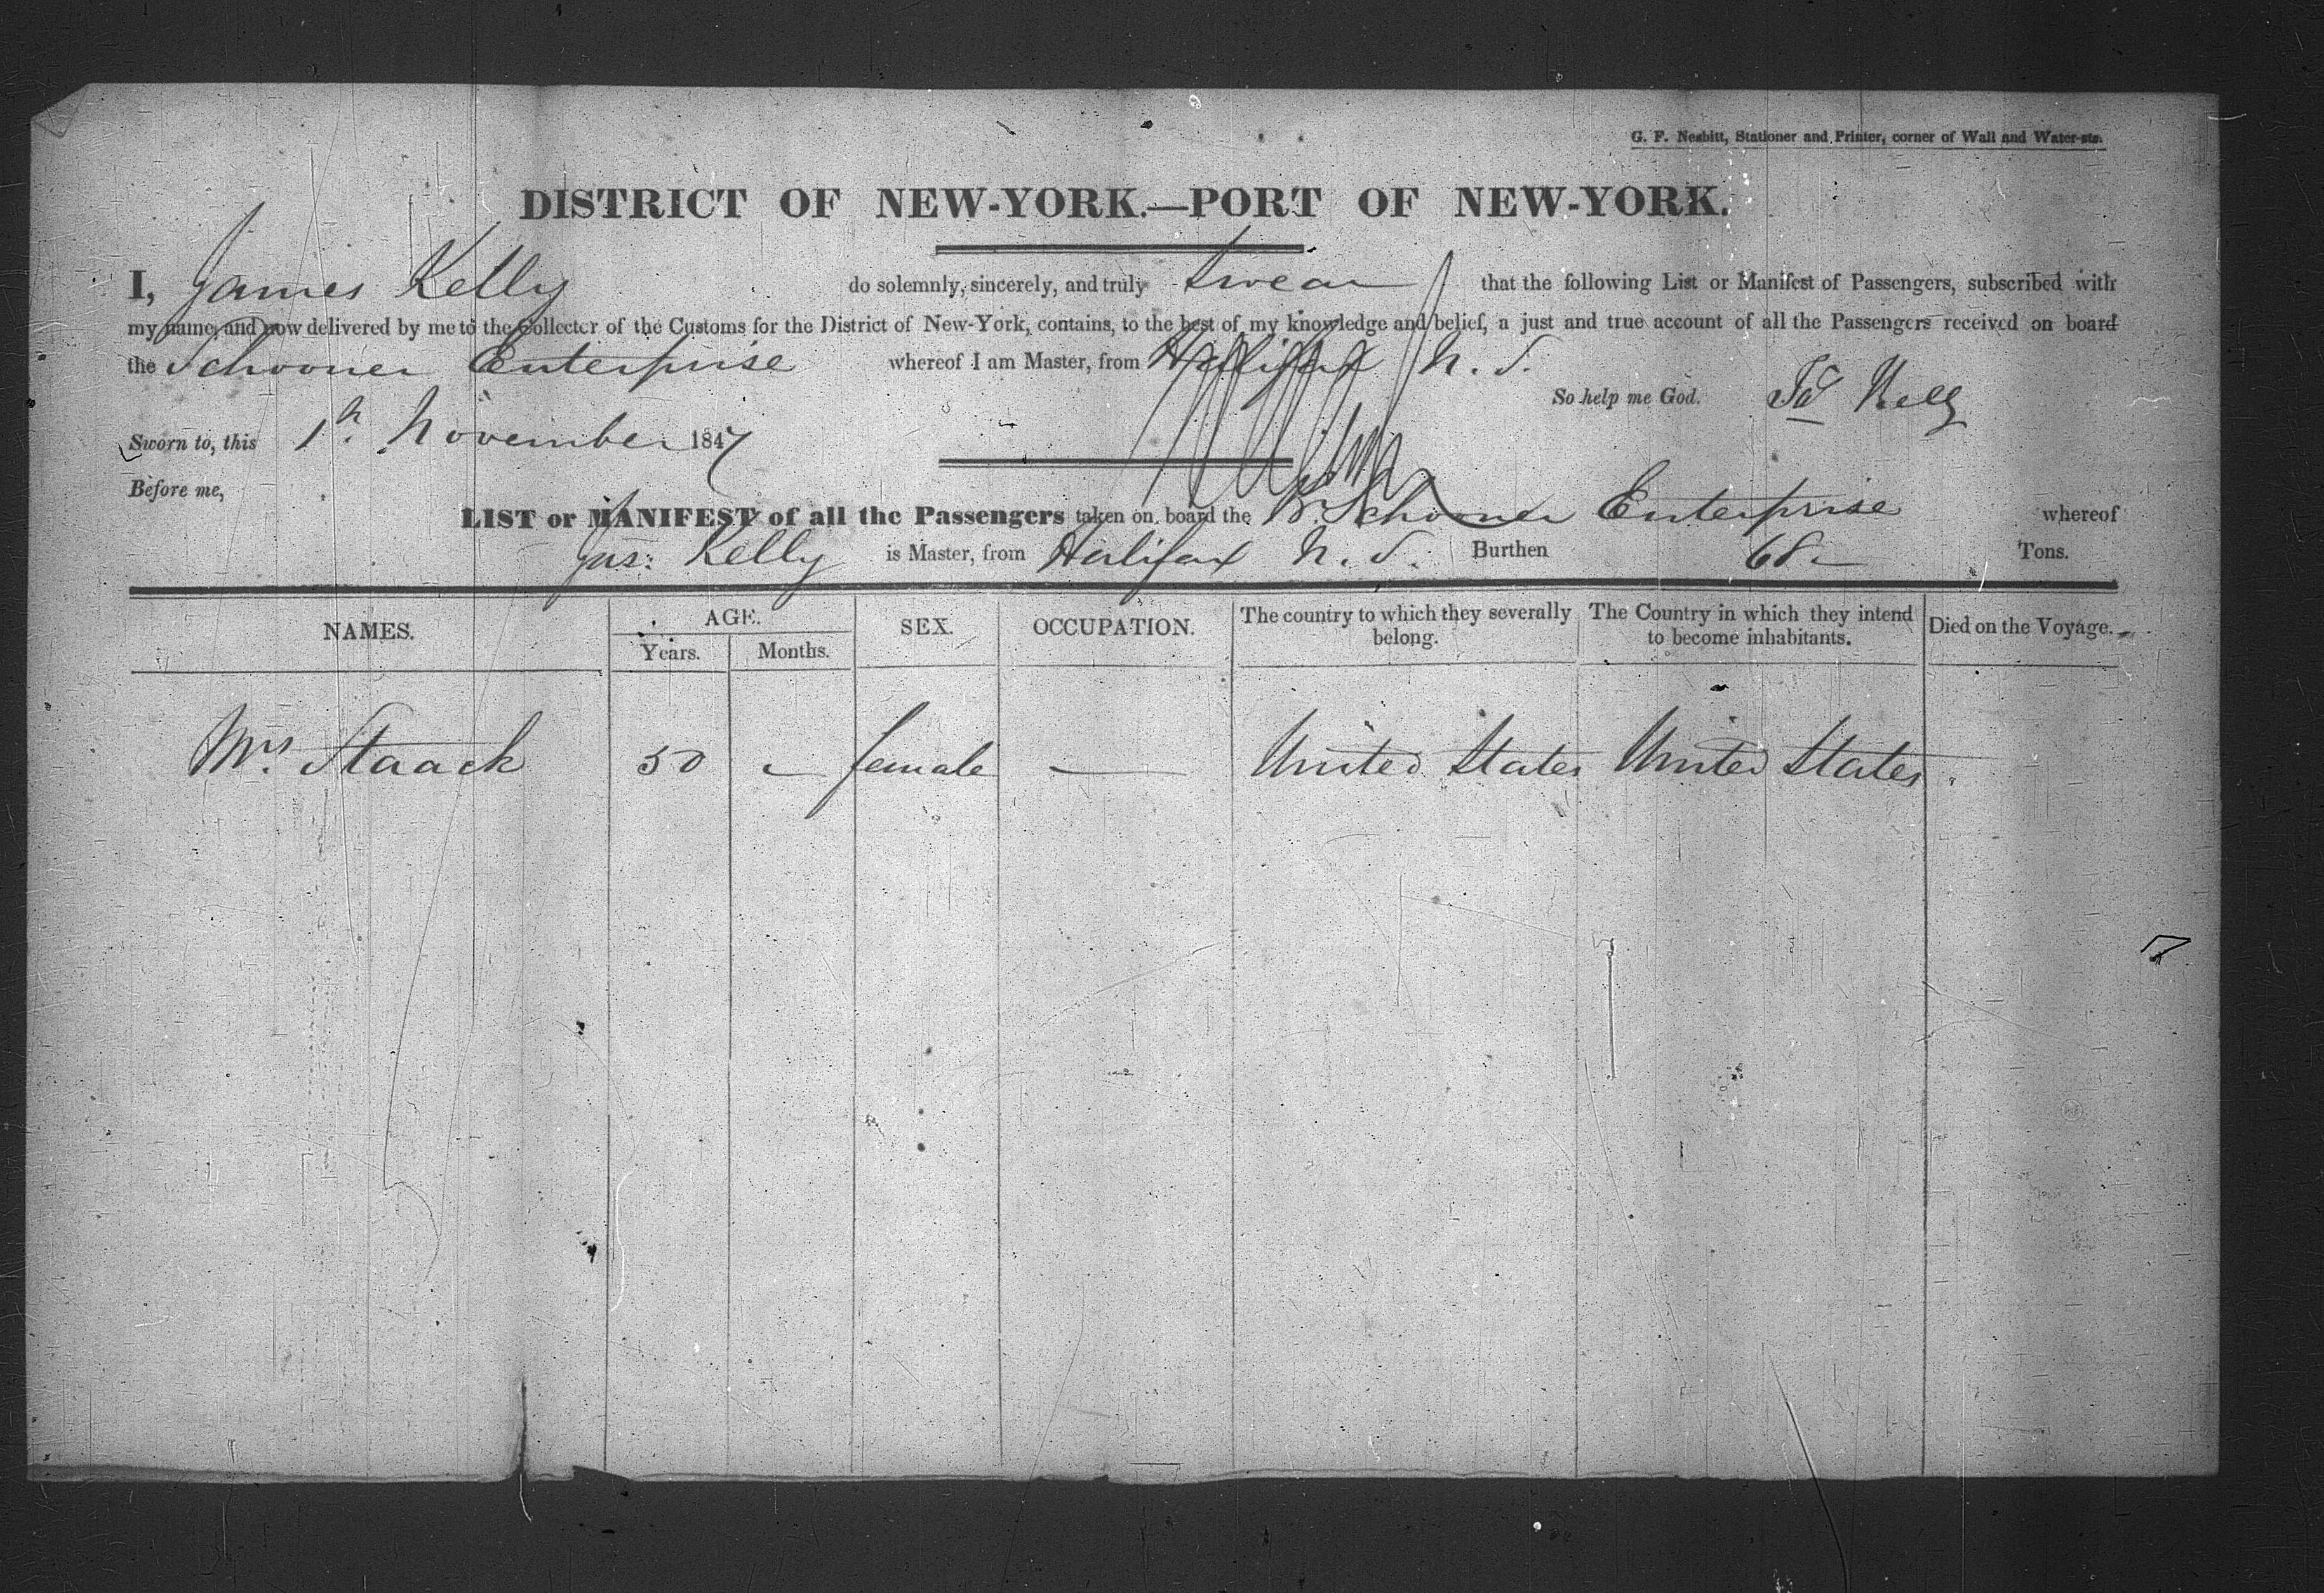 G. F. Nesbitt, Stationer and Printer, corner of Wall and Water-sts.
DISTRICT OF NEW-YORK.—PORT OF NEW-YORK.
I, James Kelly do solemnly, sincerely, and truly swear that the following List or Manifest of Passengers, subscribed with
my name, and now delivered by me to the Collector of the Customs for the District of New-York, contains, to the best of my knowledge and belief, a just and true account of all the Passengers received on board
the Schooner Enterprise whereof I am Master, from Hallifax N. S.
So help me God. Kelly
Sworn to, this 1st November 1847
Before me,
LIST or MANIFEST of all the Passengers taken on board the Br Schooner Enterprise whereof
Jas: Kelly is Master, from Halifax N. S. Burthen 68 Tons.
NAMES. AGE. Years. Months. SEX. OCCUPATION. The country to which they severally belong. The Country in which they intend to become inhabitants. Died on the Voyage.
Mrs. Staack 50 - female — United States United States